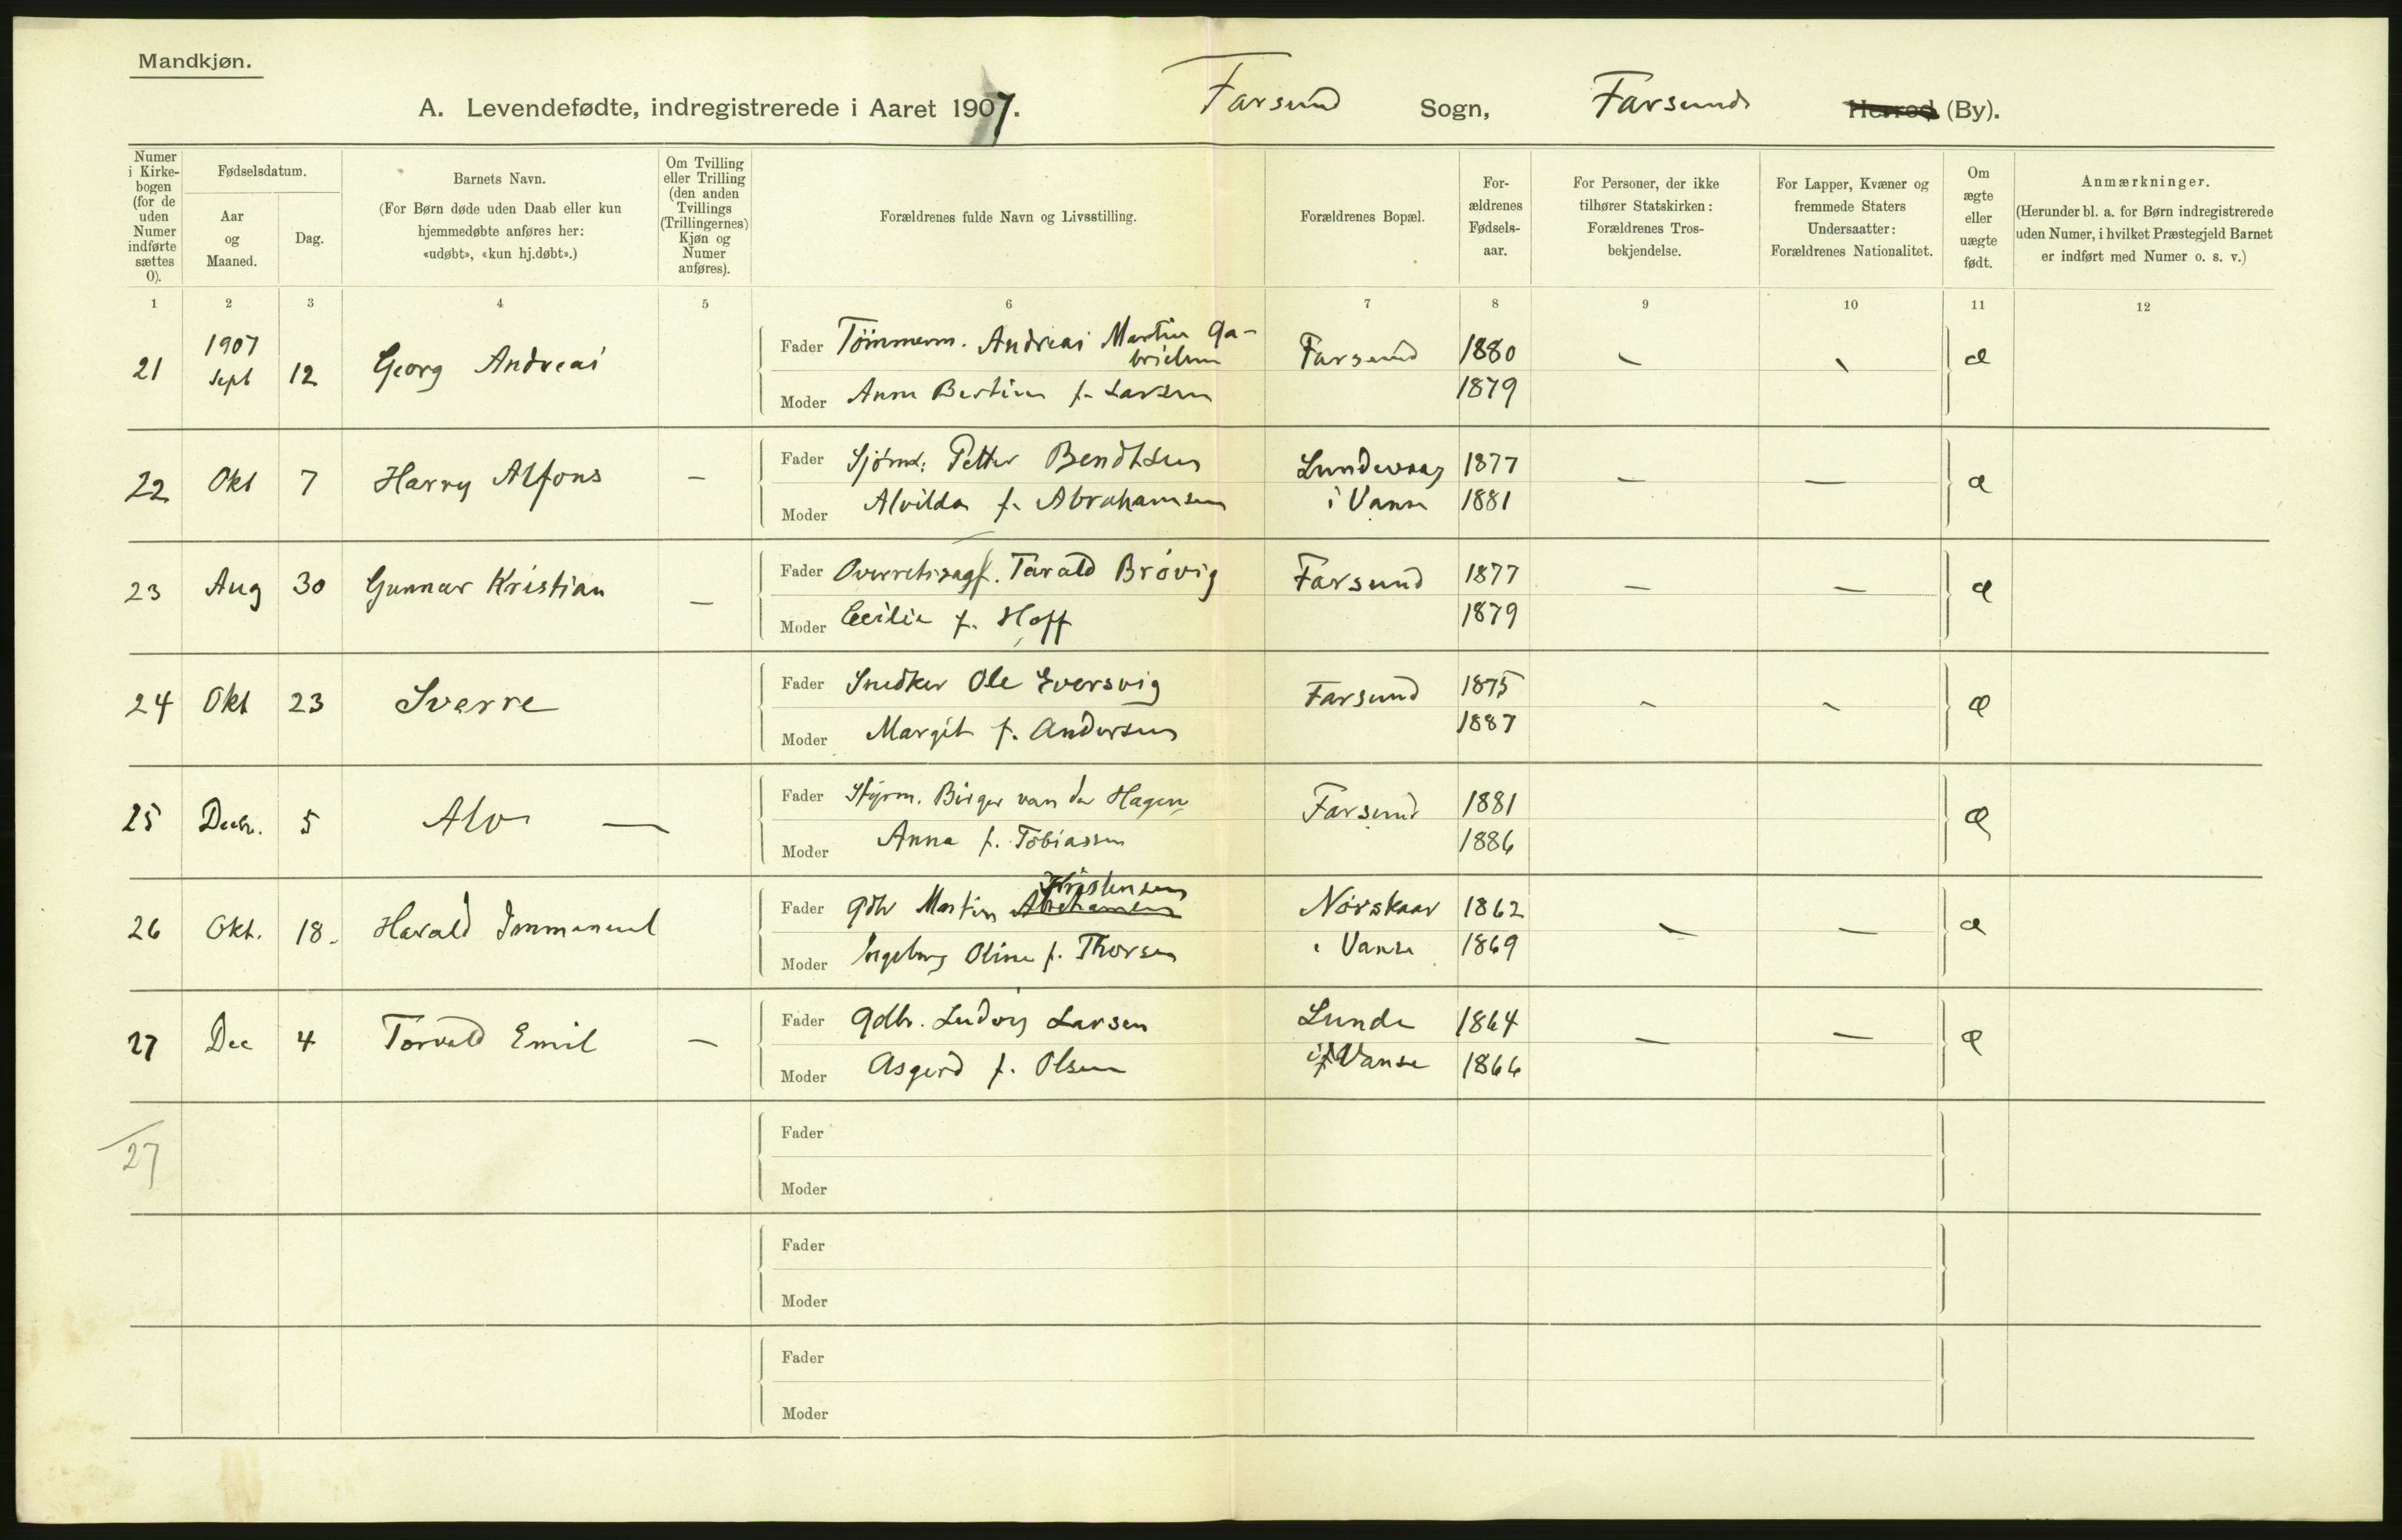 Mandkjøn.
A. Levendefødte, indregistrerede i Aaret 1907. Farsund Sogn, Farsunds Herred (By).
Numer i Kirkebogen (for de uden Numer indførte sættes 0).
Fødselsdatum.
Aar og Maaned.
Dag.
Barnets Navn.
(For Børn døde uden Daab eller kun hjemmedøbte anføres her: «udøbt», «kun hj.døbt».)
Om Tvilling eller Trilling (den anden Tvillings (Trillingernes) Kjøn og Numer anføres).
Forældrenes fulde Navn og Livsstilling.
Forældrenes Bopæl.
For-ældrenes Fødsels-aar.
For Personer, der ikke tilhører Statskirken: Forældrenes Tros-bekjendelse.
For Lapper, Kvæner og fremmede Staters Undersaatter: Forældrenes Nationalitet.
Om ægte eller uægte født.
Anmærkninger.
(Herunder bl. a. for Børn indregistrerede uden Numer, i hvilket Præstegjeld Barnet er indført med Numer o. s. v.)
1 2 3 4 5 6 7 8 9 10 11 12
21 1907 Sept 12 Georg Andreas Fader Tömmerm. Andreas Martin Ga-brielsen Farsund 1880 - - æ
Moder Anna Bertine f. Larsen 1879
22 Okt 7 Harry Alfons - Fader Sjömd: Petter Bendtsen Lundevaag 1877 - - æ
Moder Alvilda f. Abrahamsen i Vanse 1881
23 Aug 30 Gunnar Kristian - Fader Overretssagf. Tarald Brøvig Farsund 1877 - - æ
Moder Cecilie f. Hoff 1879
24 Okt 23 Sverre Fader Snedker Ole Eversvig Farsund 1875 - - æ
Moder Margit f. Andersen 1887
25 Decbr. 5 Alv — Fader Styrm. Birger van der Hagen Farsund 1881 æ
Moder Anna f. Tobiassen 1886
26 Okt. 18. Harald Immanuel Fader Gdbr Martin Abrahamsen Kristensen Nørskaar 1862 - - æ
Moder Ingeborg Oline f. Thorsen i Vanse 1869
27 Dec 4 Torvald Emil - Fader Gdbr. Ludvig Larsen Lunde 1864 - - æ
Moder Asgerd f. Olsen i Vanse 1866
27 Fader
Moder
Fader
Moder
Fader
Moder